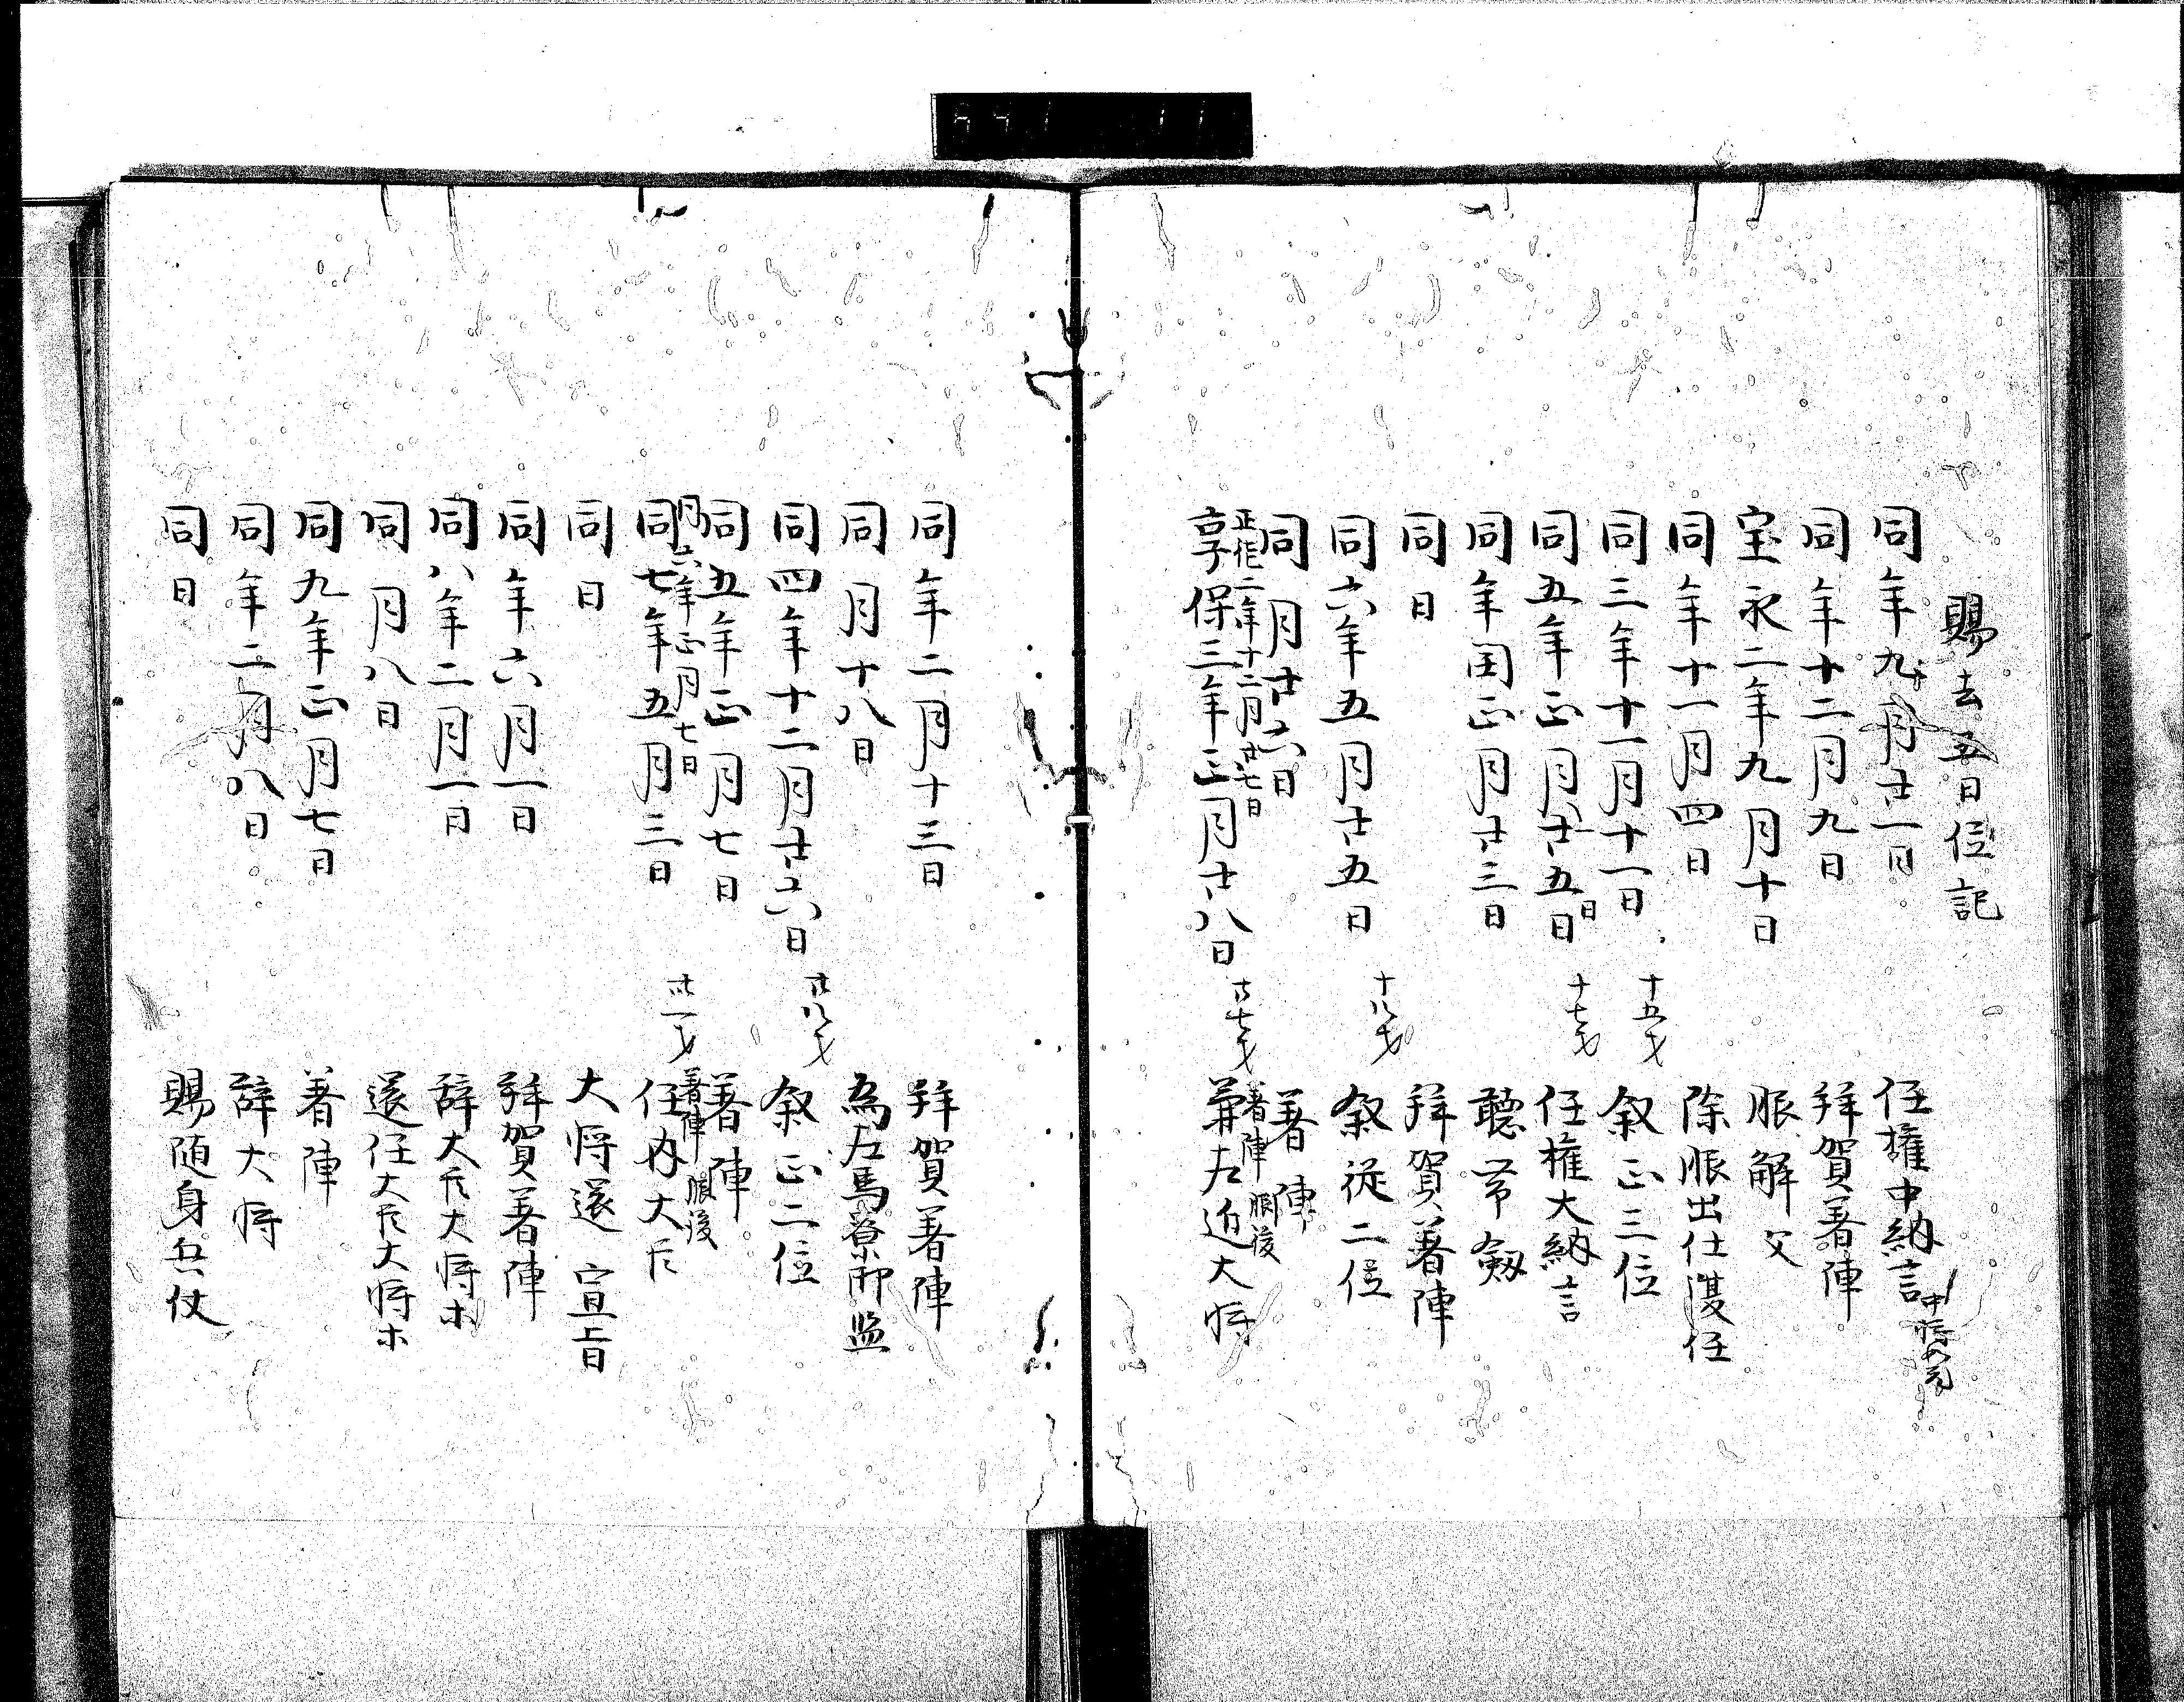 賜去五日位記
同年九月廿一日 任権中納言
同年十二月九日 拝賀著陣
宝永二年九月十日 服解 父
同年十一月四日 除服出仕復任
同三年十一月十一日 十五才 叙正三位
同五年正月廿五日 十七才 任権大納言
同年閏正月廿三日 聴帯剱
同日 拝賀著陣
同六年五月廿五日 十八才 叙従二位
同月廿六日 著陣
正徳二年十二月廿七日 著陣 服後
享保三年三月廿八日 廿七才 兼左近大将
同年二月十三日 拝賀著陣
同月十八日 為左馬寮御監
同四年十二月廿六日 廿八才 叙正二位
同五年正月七日 著陣
同六年正月七日 著陣 服後
同七年五月三日 卅一才 任内大臣
同日 大将還宣旨
同年六月一日 拝賀著陣
同八年二月一日 辞大臣大将ホ
同月八日 還任大臣大将ホ
同九年正月七日 著陣
同年二月八日 辞大将
同日 賜随身兵仗